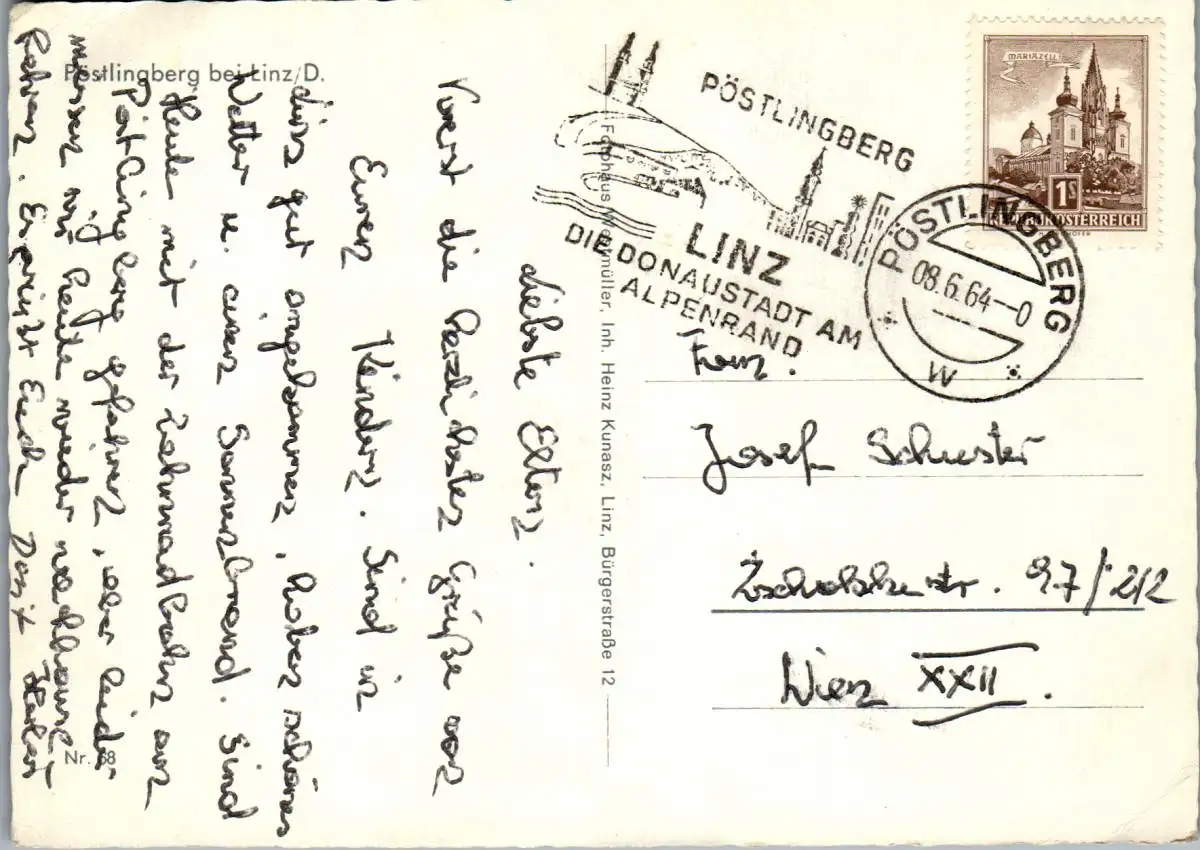 Pöstlingberg bei Linz/D.
Liebste Eltern.
Vorerst die herzlichsten Grüße von
Euren Kindern. Sind in
Linz gut angekommen, haben schönes
Wetter u. einen Sonnenbrand. Sind
Heute mit der Zahnradbahn am
Pöstlingberg gefahren, aber leider
müssen wir heute wieder nachhause
fahren. Es grüßt Euch
Nr. 68
Fotohaus Wehrmüller, Inh. Heinz Kunasz, Linz, Bürgerstraße 12
PÖSTLINGBERG
LINZ
DIE DONAUSTADT AM
ALPENRAND
MARIAZELL
1S
REPUBLIK ÖSTERREICH
PÖSTLINGBERG
08.6.64–0
W
Fam.
Josef Schuster
Zschokkestr. 97/212
Wien XXII.